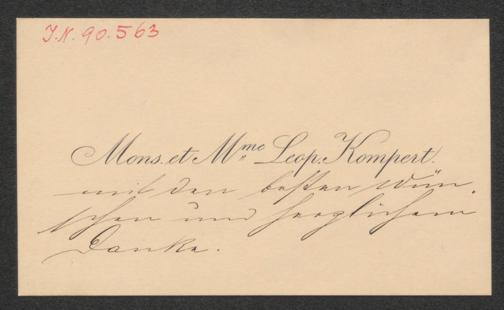 J.N. 90.563
Mons. et Mme Leop. Kompert.
mit den besten Wün-
schen und herzlichem
Danke.